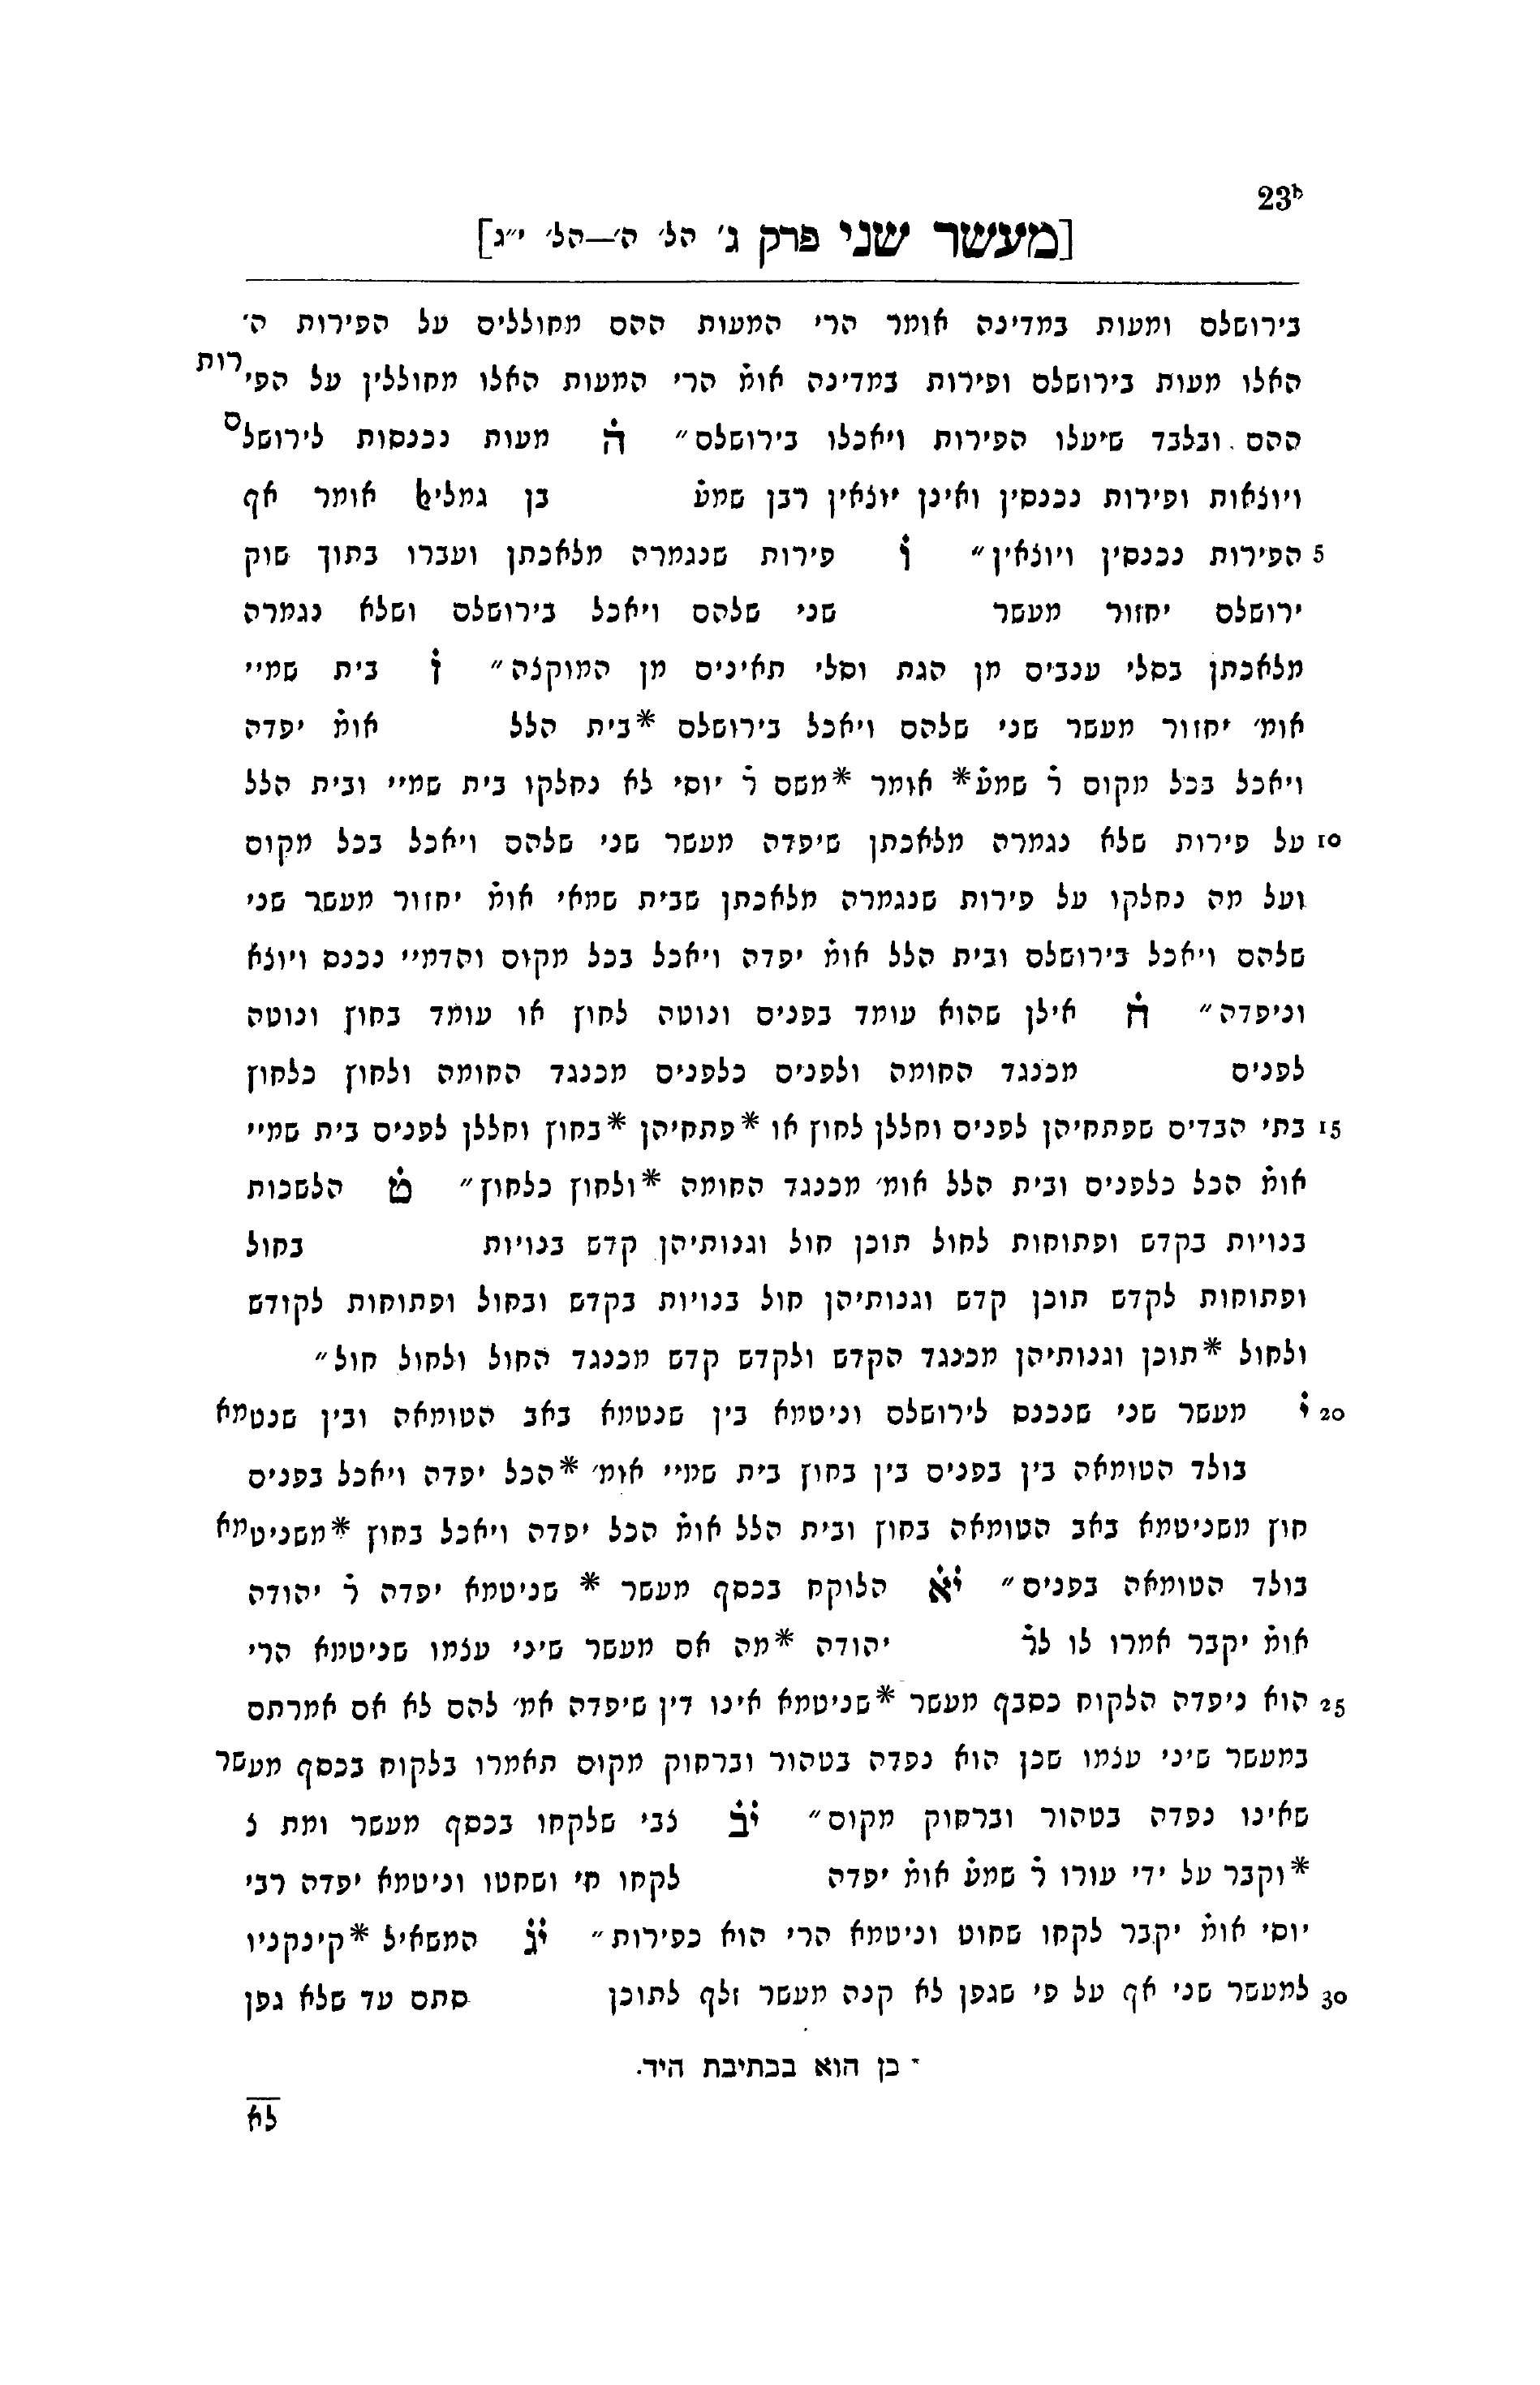 23ᵇ
[מעשר שני פרק ג׳ הל׳ ה׳—הל׳ י״ג]
בירושלם ומעות במדינה אומר הרי המעות ההם מחוללים על הפירות ה׳
האלו מעות בירושלם ופירות במדינה אומ̇ הרי המעות האלו מחוללין על הפירות
ההם . ובלבד שיעלו הפירות ויאכלו בירושלם״ ה̇ מעות נכנסות לירושלם
ויוצאות ופירות נכנסין ואינן יוצאין רבן שמע̇ בן גמליאל אומר אף
5 הפירות נכנסין ויוצאין״ ו̇ פירות שנגמרה מלאכתן ועברו בתוך שוק
ירושלם יחזור מעשר שני שלהם ויאכל בירושלם ושלא נגמרה
מלאכתן בסלי ענבים מן הגת וסלי תאינים מן המוקצה״ ז̇ בית שמיי
אומ׳ יחזור מעשר שני שלהם ויאכל בירושלם *בית הלל אומ̇ יפדה
ויאכל בכל מקום ר̇ שמע̇* אומר *משם ר̇ יוסי לא נחלקו בית שמיי ובית הלל
10 על פירות שלא נגמרה מלאכתן שיפדה מעשר שני שלהם ויאכל בכל מקום
ועל מה נחלקו על פירות שנגמרה מלאכתן שבית שמאי אומ̇ יחזור מעשר שני
שלהם ויאכל בירושלם ובית הלל אומ̇ יפדה ויאכל בכל מקום והדמיי נכנס ויוצא
וניפדה״ ח̇ אילן שהוא עומד בפנים ונוטה לחוץ או עומד בחוץ ונוטה
לפנים מכנגד החומה ולפנים כלפנים מכנגד החומה ולחוץ כלחוץ
15 בתי הבדים שפתחיהן לפנים וחללן לחוץ או *פתחיהן *בחוץ וחללן לפנים בית שמיי
אומ̇ הכל כלפנים ובית הלל אומ׳ מכנגד החומה *ולחוץ כלחוץ״ ט̇ הלשכות
בנויות בקדש ופתוחות לחול תוכן חול וגגותיהן קדש בנויות בחול
ופתוחות לקדש תוכן קדש וגגותיהן חול בנויות בקדש ובחול ופתוחות לקודש
ולחול *תוכן וגגותיהן מכנגד הקדש ולקדש קדש מכנגד החול ולחול חול״
20 י̇ מעשר שני שנכנס לירושלם וניטמא בין שנטמא באב הטומאה ובין שנטמא
בולד הטומאה בין בפנים בין בחוץ בית שמיי אומ׳ *הכל יפדה ויאכל בפנים
חוץ משניטמא באב הטומאה בחוץ ובית הלל אומ̇ הכל יפדה ויאכל בחוץ *משניטמא
בולד הטומאה בפנים״ י̇א̇ הלוקח בכסף מעשר * שניטמא יפדה ר̇ יהודה
אומ̇ יקבר אמרו לו לר̇ יהודה *מה אם מעשר שיני עצמו שניטמא הרי
25 הוא ניפדה הלקוח כסבף מעשר *שניטמא אינו דין שיפדה אמ׳ להם לא אם אמרתם
במעשר שיני עצמו שכן הוא נפדה בטהור וברחוק מקום תאמרו בלקוח בכסף מעשר
שאינו נפדה בטהור וברחוק מקום״ י̇ב̇ צבי שלקחו בכסף מעשר ומת צ
*וקבר על ידי עורו ר̇ שמע̇ אומ̇ יפדה לקחו חי ושחטו וניטמא יפדה רבי
יוסי אומ̇ יקבר לקחו שחוט וניטמא הרי הוא כפירות״ י̇ג̇ המשאיל *קינקניו
30 למעשר שני אף על פי שגפן לא קנה מעשר זלף לתוכן סתם עד שלא גפן
* כן הוא בכתיבת היד.
לא